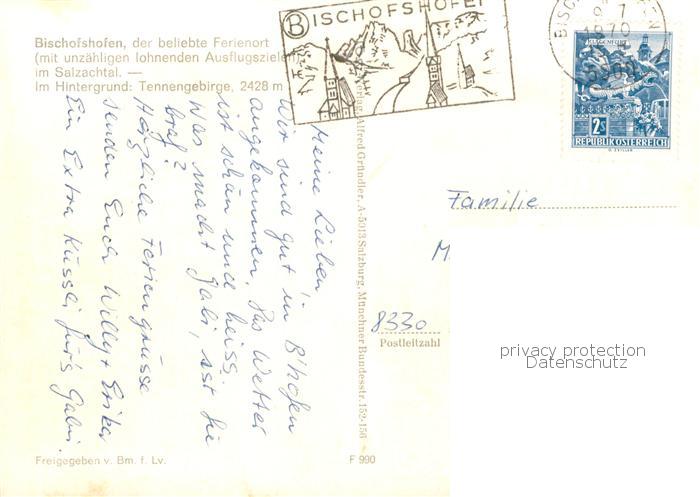 Bischofshofen, der beliebte Ferienort
(mit unzähligen lohnenden Ausflugszielen)
im Salzachtal. —
Im Hintergrund: Tennengebirge, 2428 m
BISCHOFSHOFEN
1970
KLAGENFURT
2s
REPUBLIK ÖSTERREICH
Meine Lieben!
Wir sind gut in B'hofen
angekommen. Das Wetter
ist schön und heiss.
Was macht Gabi, isst sie
brav?
Herzliche Feriengrüsse
senden Euch Willy + Erika
Ein Extra Küssei für's Gabi.
Verlag Alfred Gründler, A-5013 Salzburg, Münchner Bundesstr. 152-156
Familie
M
8330
Postleitzahl
privacy protection
Datenschutz
Freigegeben v. Bm. f. Lv.
F 990